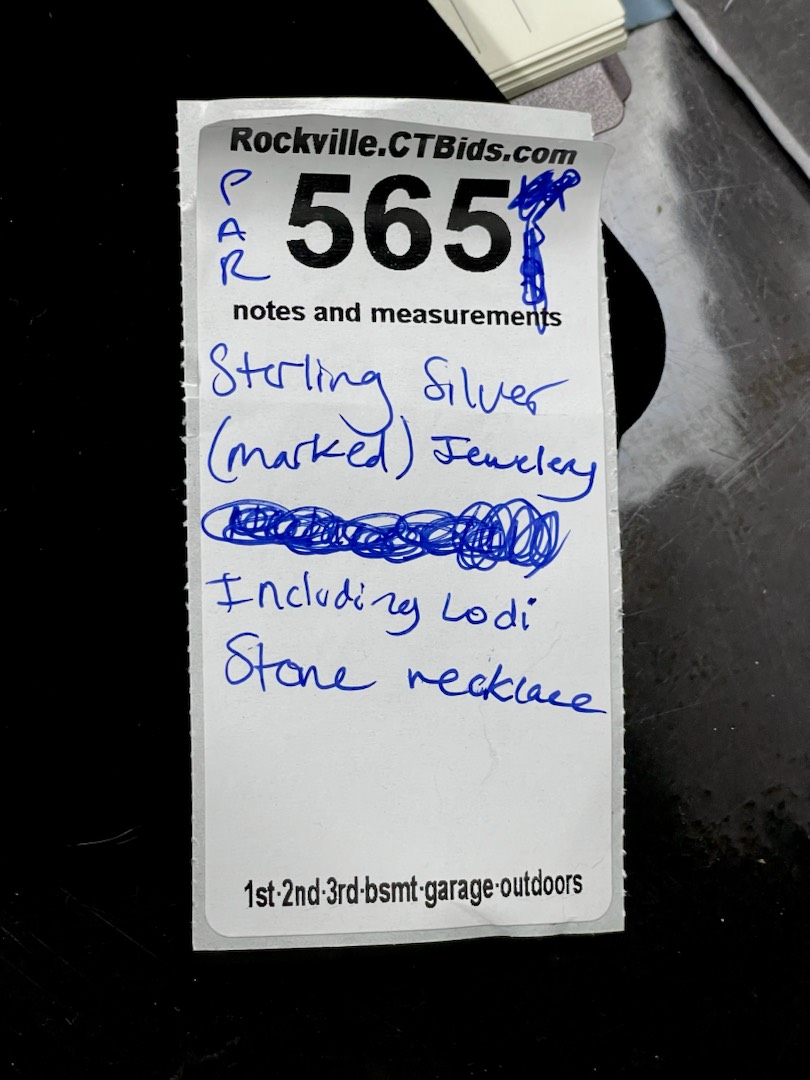 Rockville.CTBids.com
PAR
565
notes and measurements
Sterling Silver
(marked) Jewelery
Including Lodi
Stone necklace
1st·2nd·3rd·bsmt·garage·outdoors